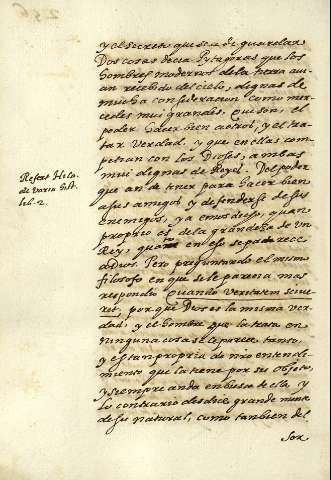 y el secreto que se a de guardar
Dos cosas decia Pytagoras que los
hombres modernos de la tierra aui-
an recebido del cielo, dignas de
mucha consideracion como mer-
cedes mui grandes. Que son, el
poder hacer bien a otro, y el tra-
tar Verdad. y que en ellas com-
petian con los Dioses, ambas
mui dignas de Reyes. Del poder
que an de tener para hacer bien
a sus amigos y defenderse de sus
enemigos, ya emos dicho, quan
proprio es de la grandeza de un
Rey, quanto en eso se parece
a Dios. Pero preguntado el mismo
filosofo en que se le parecia mas
respondio Quando Veritatem
porque Dios es la misma ver-
dad, y el hombre que la trata en
ninguna cosa se le parece tanto.
y es tan propria de nro entendi-
miento que la tiene por su objeto,
y siempre anda en busca de ella, y
lo contrario desdice grande mente
de su natural, como tambien del
de varia hist.
lib. 2.